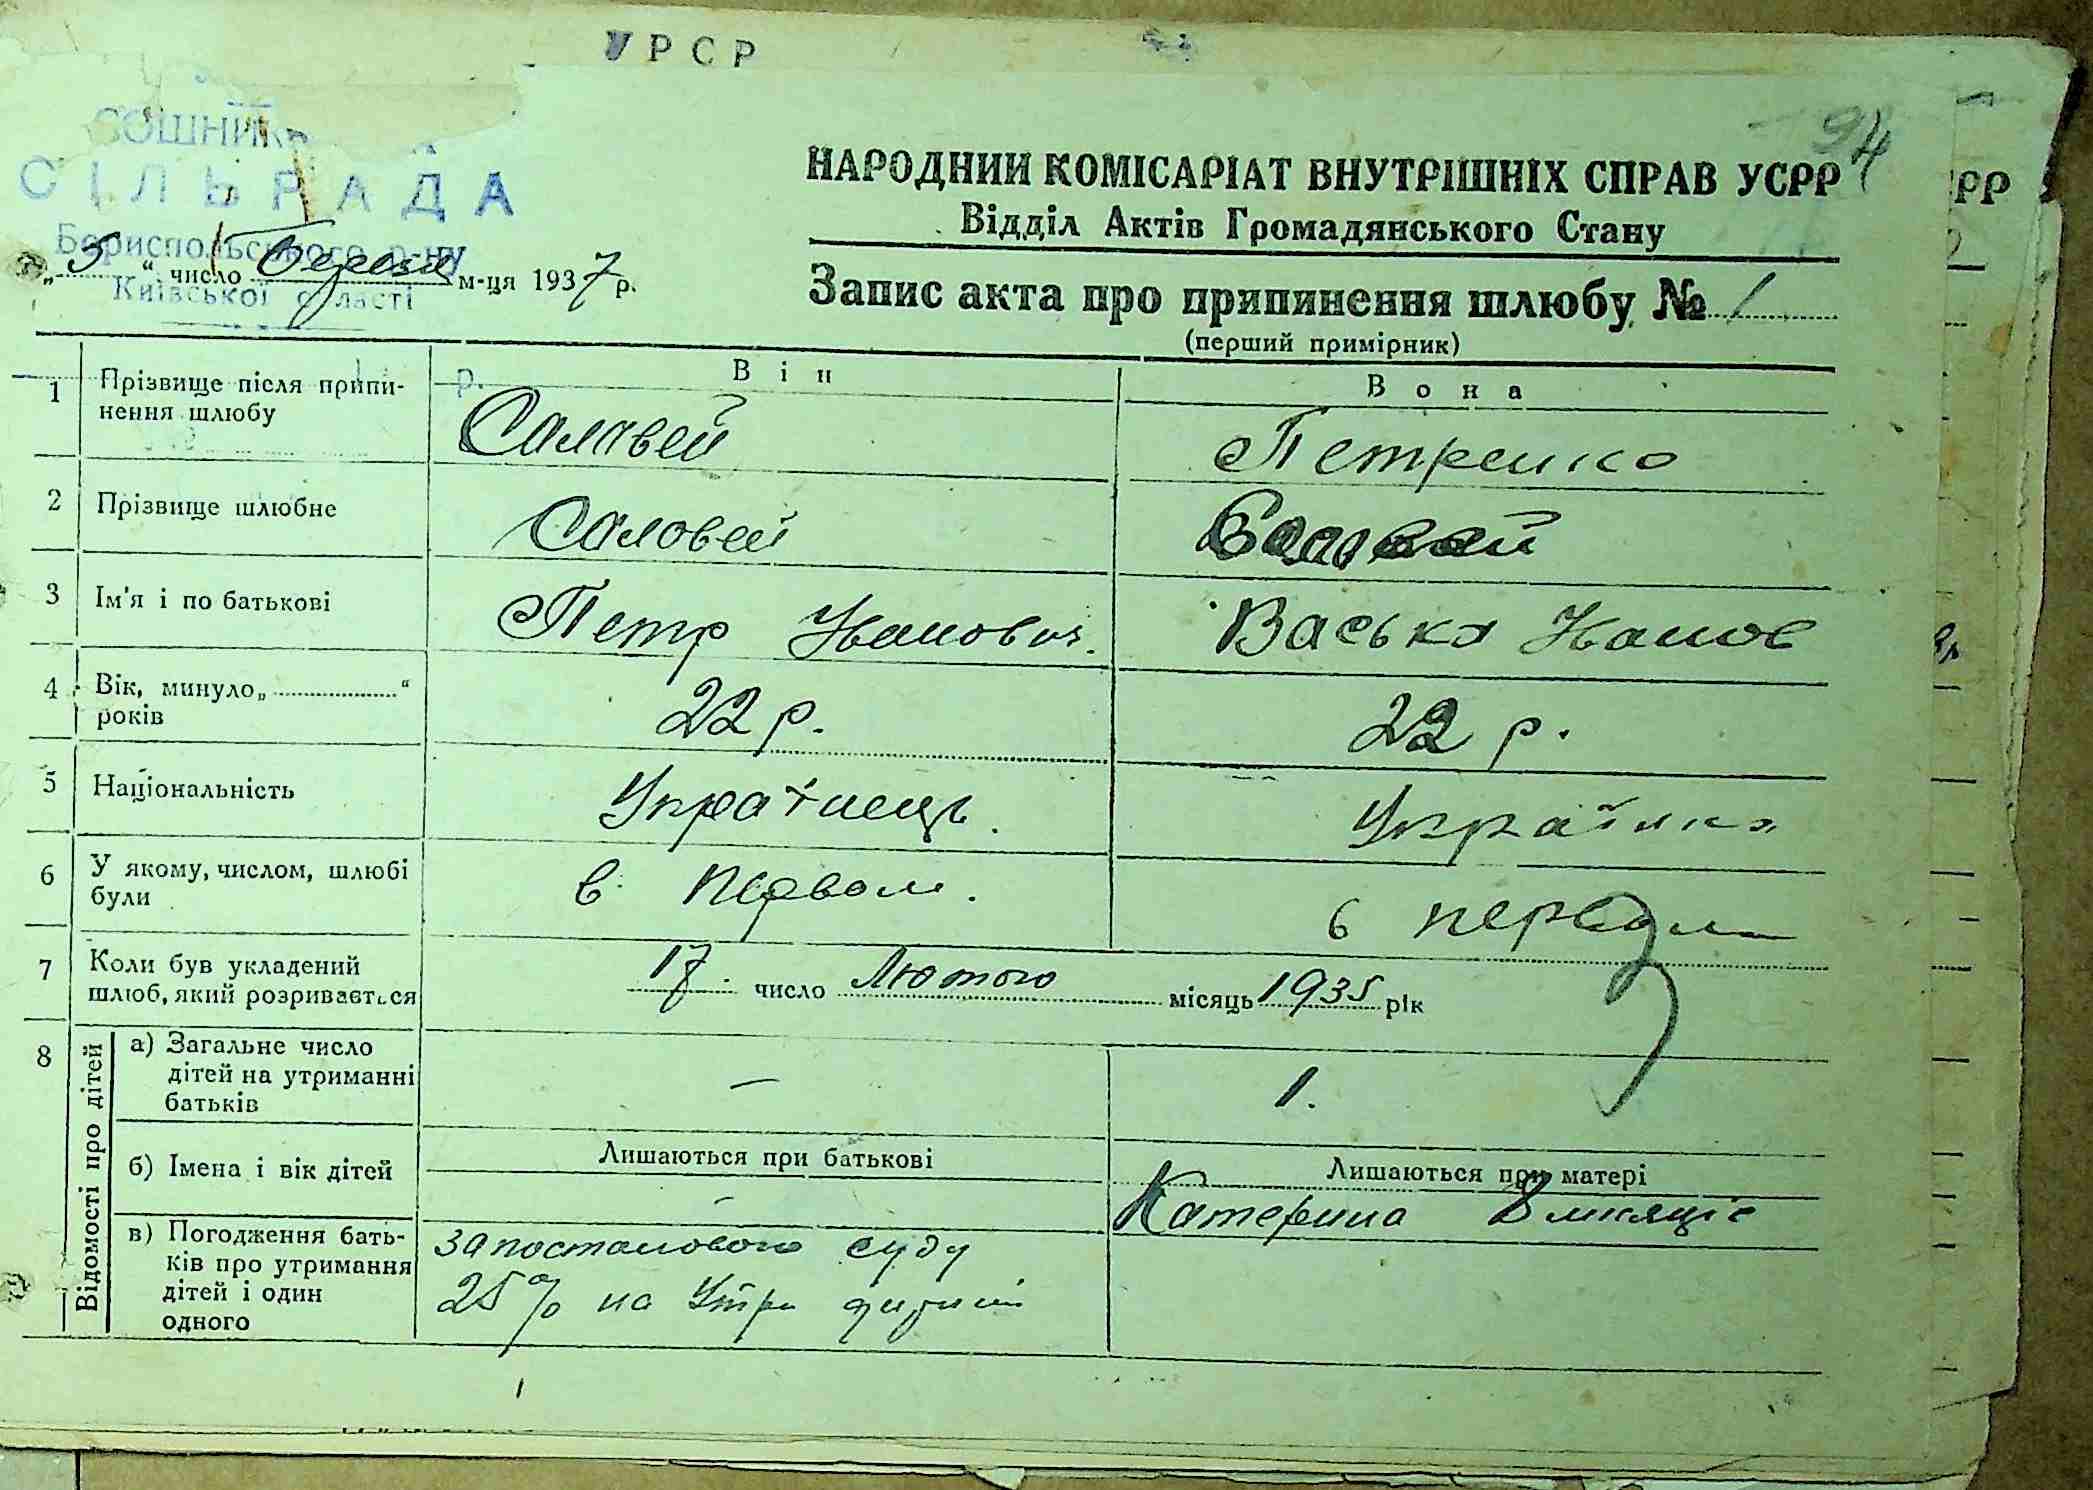 УРСР
94
СОШНИК
СІЛЬРАДА
Бориспольського р-ну
Київської області
НАРОДНИЙ КОМІСАРІАТ ВНУТРІШНІХ СПРАВ УСРР
РР
Відділ Актів Громадянського Стану
„5“ число Березня м-ця 1937 р.
Запис акта про припинення шлюбу № 1
(перший примірник)
Він
Вона
1 Прізвище після припи-
нення шлюбу
Салавей
Петренко
2 Прізвище шлюбне
Саловей
3 Ім'я і по батькові
Петр Иванович.
Васька Иванов
4 Вік, минуло „ “
років
22 р.
22 р.
5 Національність
Українець.
Українка
6 У якому, числом, шлюбі
були
в первом.
в первом
7 Коли був укладений
шлюб, який розривається
17. число Лютого місяць 1935 рік
8 Відомості про дітей
а) Загальне число
дітей на утриманні
батьків
—
1.
б) Імена і вік дітей
Лишаються при батькові
Лишаються при матері
–
Катерина 8
в) Погодження бать-
ків про утримання
дітей і один
одного
за постановою суду
25% на Утри дитини